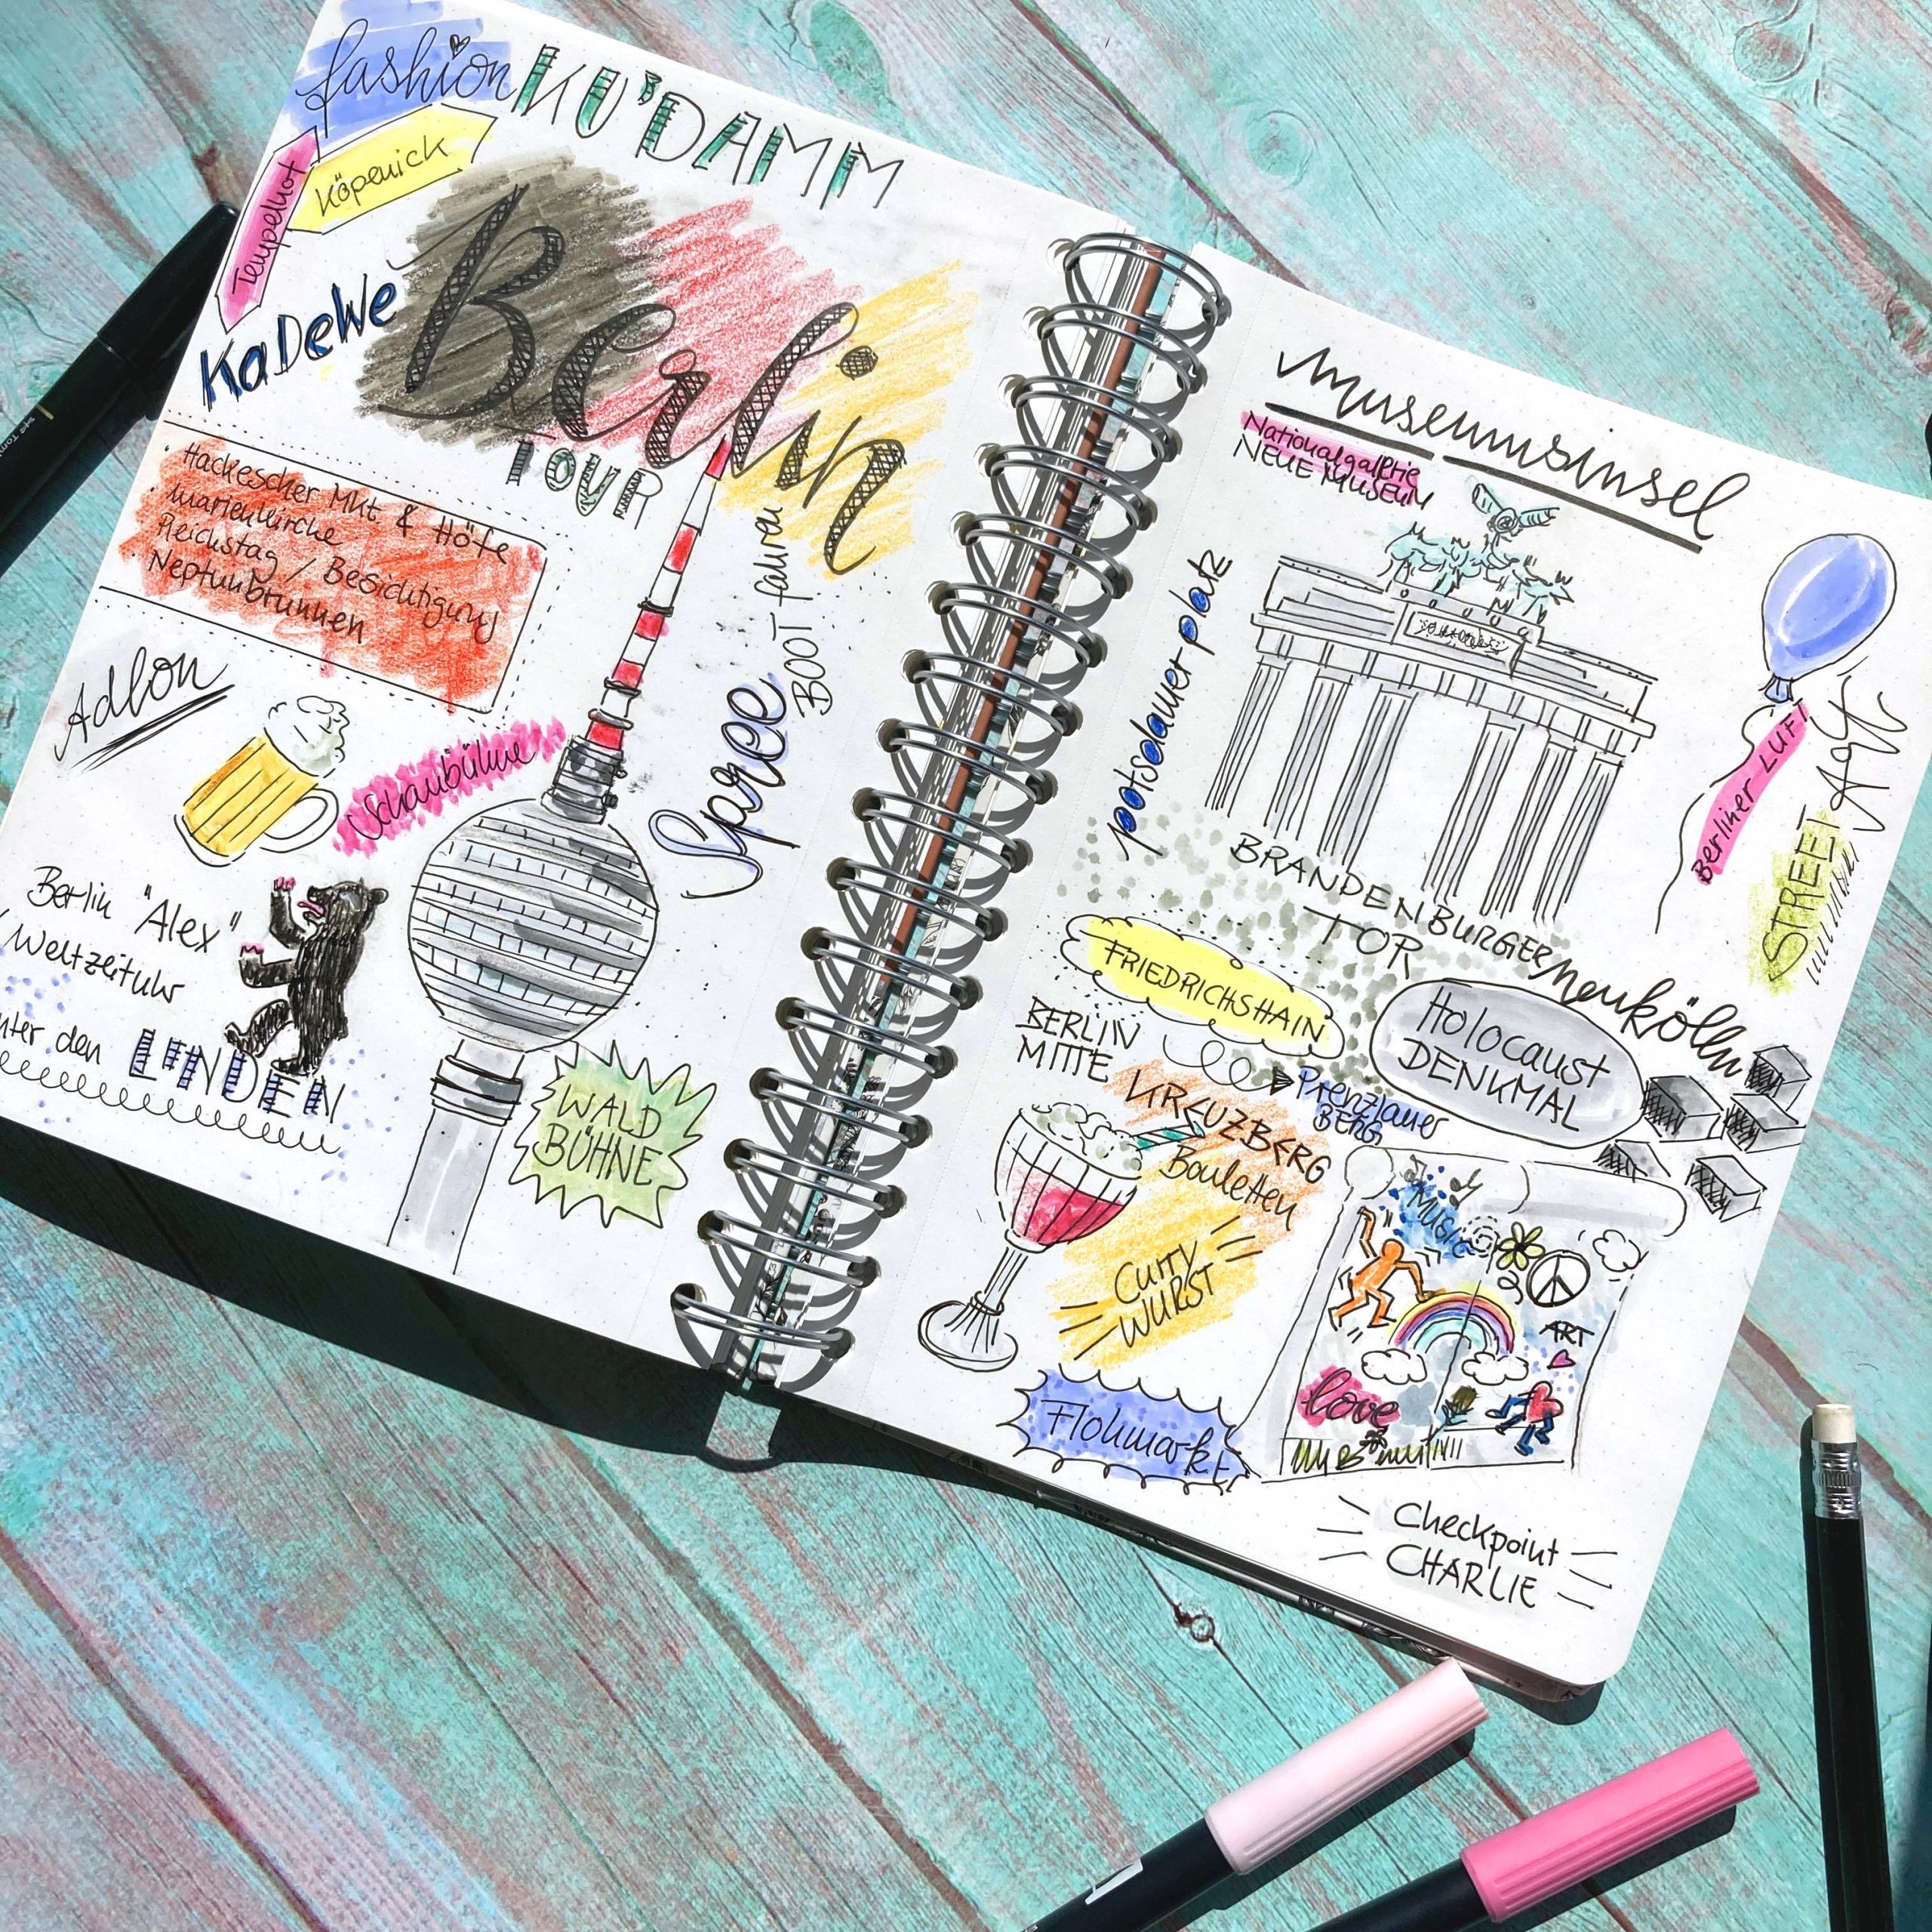 fashion
KU'DAMM
Köpenick
Tempelhof
KaDeWe
Berlin
TOUR
· Hackescher Mkt & Höfe
· Marienkirche
Reichstag / Besichtigung
Neptunbrunnen
Adlon
Schaubühne
Spree
BOOT fahren
Berlin "Alex"
Weltzeituhr
nter den LINDEN
WALD
BÜHNE
Museumsinsel
Nationalgalerie
NEUE MUSEUM
potsdamer platz
BRANDENBURGER
TOR
Berliner LUFT
STREET Art
FRIEDRICHSHAIN
neukölln
Holocaust
DENKMAL
BERLIN
MITTE
Prenzlauer
BERG
KREUZBERG
Bouletten
Curry
WURST
Music
ART
love
Flohmarkt
Checkpoint
CHARLIE